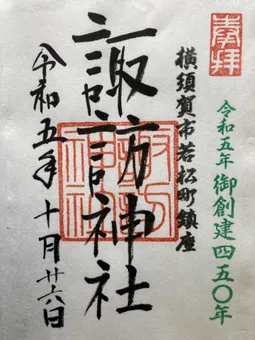 奉拝
令和五年 御創建四五〇年
横須賀市若松町鎮座
諏訪神社
令和五年十月廿六日